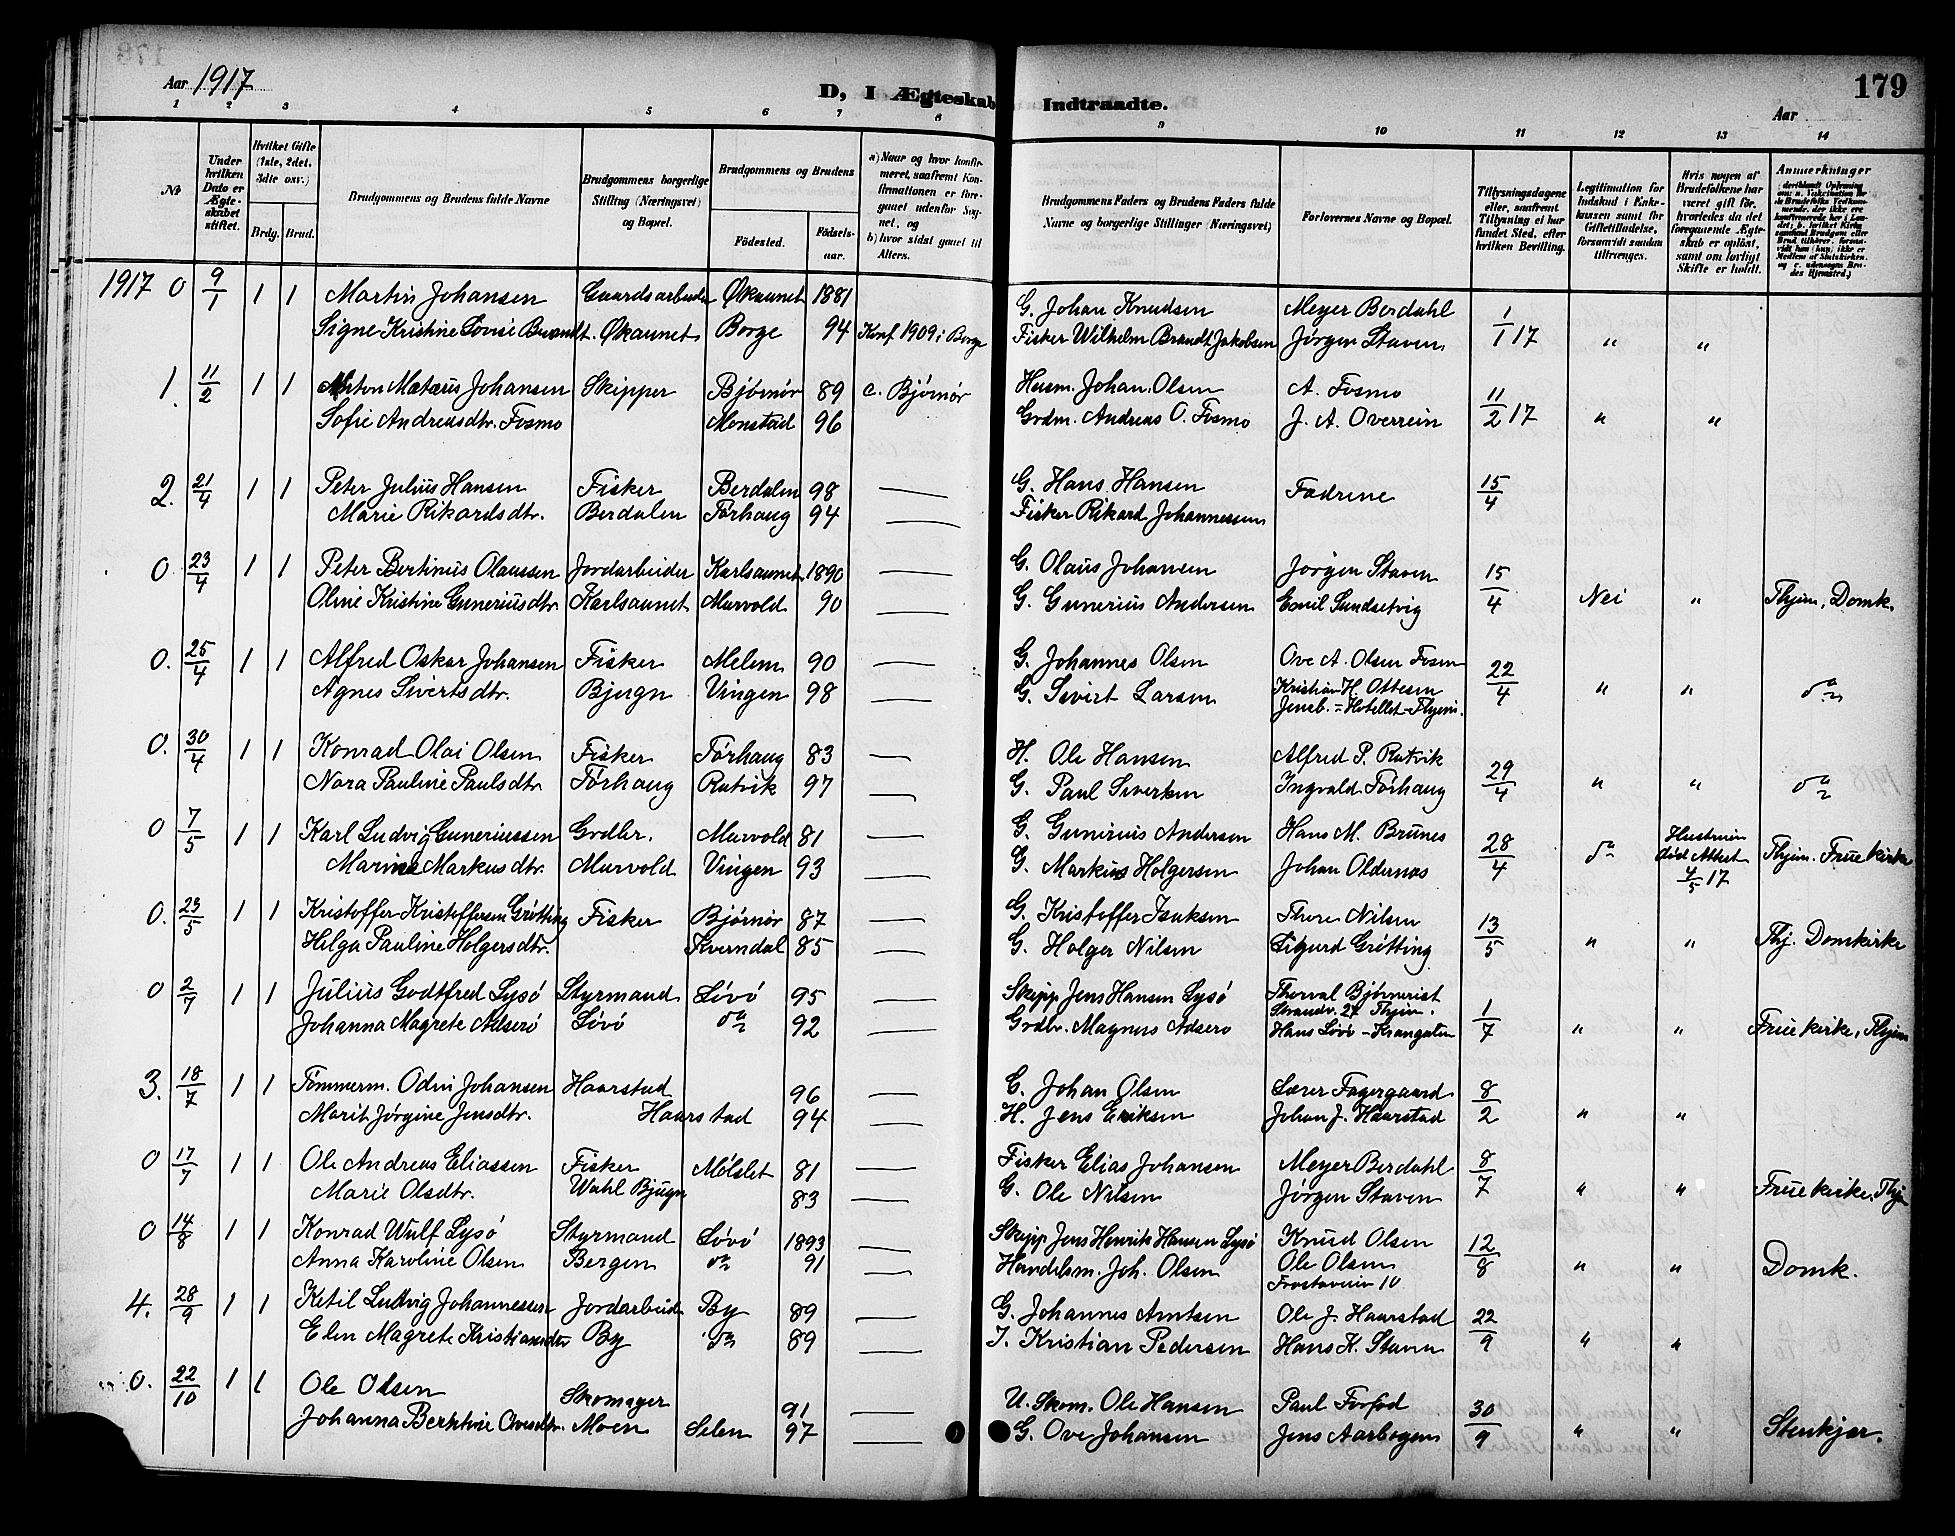 Aar 1917
D, I Ægteskab Indtraadte.
179
Aar
1 2 3 4 5 6 7 8 9 10 11 12 13 14
No
Under hvilken Dato er Ægteskabet stiftet.
Hvilket Gifte (1ste, 2det, 3die osv.)
Brdg. Brud.
Brudgommens og Brudens fulde Navne
Brudgommens borgerlige Stilling (Næringsvei) og Bopæl.
Brudgommens og Brudens
Fødested.
Fødselsaar.
a) Naar og hvor konfirmeret, saafremt Konfirmationen er foregaaet udenfor Sognet, og
b) hvor sidst gaaet til Alters.
Brudgommens Faders og Brudens Faders fulde Navne og borgerlige Stillinger (Næringsvei)
Forlovernes Navne og Bopæl.
Tillysningsdagene eller, saafremt Tillysning ei har fundet Sted, efter hvilken Bevilling.
Legitimation for Indskud i Enkekassen samt for Giftetilladelse, forsaavidt saadan tiltrænges.
Hvis nogen af Brudefolkene har været gift før, hvorledes da det foregaaende Ægteskab er opløst, samt om lovligt Skifte er holdt.
Anmærkninger
1917 0 9/1 1 1 Martin Johansen Gaardsarbeider Økaunet 1881 G. Johan Knudsen Meyer Berdahl 1/1 17 " "
Signe Kristine Lovise Brandt. Økaunet Borge 94 Konf 1909 i Borge Fisker Wilhelm Brandt Jakobsen Jørgen Staven
1. 11/2 1 1 Anton Matæus Johansen Skipper Bjørnør 89 c. Bjørnør Husm. Johan Olsen A. Fosmo 11/2 17 " "
Sofie Andreasdtr. Fosmo Monstad 96 Grdm. Andreas O. Fosmo J. A. Overrein
2. 21/4 1 1 Peter Julius Hansen Fisker Berdalen 98 — G. Hans Hansen Fadrene 15/4
Marie Rikardsdtr. Berdalen Tørhaug 94 — Fisker Rikard Johannessen
0. 23/4 1 1 Peter Bertinius Olaussen Jordarbeider Karlsaunet 1890 — G. Olaus Johansen Jørgen Staven 15/4 Nei " Thjem, Domk.
Oline Kristine Guneriusdtr. Karlsaunet Murvold 90 — G. Gunerius Andersen Emil Sundsetvig
0. 25/4 1 1 Alfred Oskar Johansen Fisker Melem 90 — G. Johannes Olsen Ove A. Olsen Fosm 22/4 " " do
Agnes Sivertsdtr. Bjugn Vingen 98 — G. Sivert Larsen Kristian H. Ottesen
Jernb. = Hotellet - Thjem.
0. 30/4 1 1 Konrad Olai Olsen Fisker Tørhaug 83 — H. Ole Hansen Alfred P. Rutvik 29/4 " " do
Nora Pauline Paulsdtr Tørhaug Rutvik 97 — G. Paul Sivertsen Ingvald Tørhaug
0 7/5 1 1 Karl Ludvig Guneriussen Grdbr. Murvold 81 — G. Gunerius Andersen Hans M. Brunes 28/4 do Hustruen død Attest 4/5 17 Thjem. Frue Kirke
Marine Markusdtr. Murvold Vingen 93 — G. Markus Holgersen Johan Oldernæs
0. 23/5 1 1 Kristoffer Kristoffersen Grøtting Fisker Bjørnør 87 — G. Kristoffer Isaksen Thore Nilsen 13/5 " " Thj. Domkirke
Helga Pauline Holgersdtr. Kverndal 85 — G. Holger Nilsen Sigurd Grøtting
0 2/7 1 1 Julius Godtfred Lysø Styrmand Løvø 95 — Skipp Jens Hansen Lysø Thorval Bjørnerist
Strandv. 27 Thjem.
Johanna Magrete Adserø Løvø do 92 — Grdbr. Magnus Adserø Hans Løvø - Krangaten 1/7 " " Frue kirke, Thjem
3. 18/7 1 1 Tømmerm. Odin Johansen Haarstad 96 — G. Johan Olsen Lærer Fagergaard 8/2 " "
Marit Jørgine Jensdtr. Haarstad 94 — H. Jens Eriksen Johan J. Haarstad
0 17/7 1 1 Ole Andreas Eliassen Fisker Mølslet 81 — Fisker Elias Johansen Meyer Berdahl 8/7 " " Frue kirke, Thj
Marie Olsdtr. Wahl Bjugn 83 — G. Ole Nilsen Jørgen Staven
0 14/8 1 1 Konrad Wulf Lysø Styrmand Løvø 1893 — Skipp Jens Henrik Hansen Lysø Knud Olsen 12/8 " " Domk.
Anna Karoline Olsen Bergen do 91 — Handelsm. Joh. Olsen Ole Olsen
Frostaveien 10
4. 28/9 1 1 Ketil Ludvig Johannessen Jordarbeid By 89 — G. Johannes Arntsen Ole J. Haarstad 22/9 " "
Elen Magrete Kristiansdtr By do 89 — I. Kristian Pedersen Hans K. Staven
0. 22/10 1 1 Ole Olsen Skomager 91 — U. Skom. Ole Hansen Paul Forfod 30/9 " " Stenkjær.
Johanna Berntine Ovesdtr. Moen Selen 97 — G. Ove Johansen Jens Aarbogen